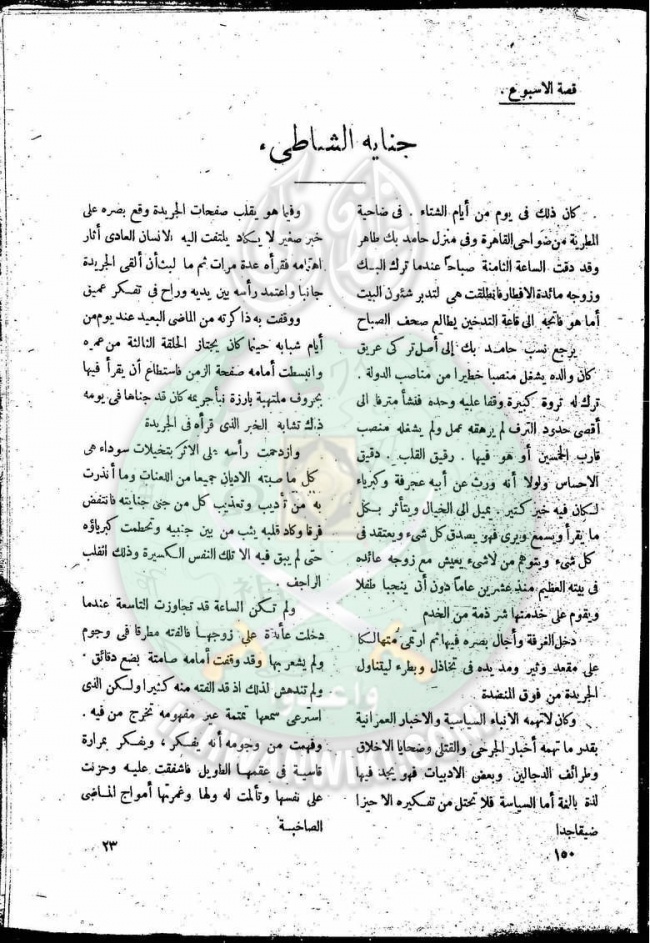 قصة الاسبوع .
جنايه الشاطىء
. كان ذلك فى يوم من أيام الشتاء . فى ضاحية
المطرية من ضواحى القاهرة وفى منزل حامد بك طاهر
وقد دقت الساعة الثامنة صباحاً عندما ترك البك
وزوجه مائدة الافطار فانطلقت هى لتدبر شئون البيت
أما هو فاتجه الى قاعة التدخين يطالع صحف الصباح
يرجع نسب حامد بك إلى أصل تركى عريق
كان والده يشغل منصبا خطيرا من مناصب الدولة .
ترك له ثروة كبيرة وقفا عليه وحده فنشأ مترفا الى
أقصى حدود الترف لم يرهقه عمل ولم يشغله منصب
قارب الخمسين أو هو فيها . رقيق القلب . دقيق
الاحساس ولولا أنه ورث عن أبيه عجرفة وكبرياء
لكان فيه خير كثير . يميل الى الخيال ويتأثر بكل
ما يقرأ ويسمع ويرى فهو يصدق كل شىء ويعتقد فى
كل شىء ويتوهم من لاشىء يعيش مع زوجه عائده
فى بيته العظيم منذ عشرين عاماً دون أن ينجبا طفلا
ويقوم على خدمتها شرذمة من الخدم
دخل الغرفة وأجال بصره فيها ثم ارتمى متهالكا
على مقعد وثير ومد يده فى تخاذل وبطء ليتناول
الجريدة من فوق المنضدة
وكان لاتهمه الانباء السياسية والاخبار العمرانية
بقدر ما تهمه أخبار الجرحى والقتلى وضحايا الاخلاق
وطرائف الدجالين . وبعض الادبيات فهو يجد فيها
لذة بالغة أما السياسة فلا تحتل من تفكيره الا حيزا
ضيقا جدا
١٥٠
وفيما هو يقلب صفحات الجريدة وقع بصره على
خبر صغير لا يكاد يلتفت اليه الانسان العادى أثار
اهتمامه فقرأه عدة مرات ثم ما لبث أن ألقى الجريدة
جانبا واعتمد رأسه بين يديه وراح فى تفكر عميق
ووقفت به ذاكرته من الماضى البعيد عند يوم من
أيام شبابه حينما كان يجتاز الحلقة الثالثة من عمره
وانبسطت أمامه صفحة الزمن فاستطاع أن يقرأ فيها
بحروف ملتهبة بارزة نبأ جريمه كان قد جناها فى يومه
ذلك تشابه الخبر الذى قرأه فى الجريدة
وازدحمت رأسه على الاثر بتخيلات سوداء هى
كل ما صبته الاديان جميعا من اللعنات وما أنذرت
به من تأديب وتعذيب كل من جنى جنايته فانتفض
فرقا وكاد قلبه يثب من بين جنبيه وتحطمت كبرياؤه
حتى لم يبق فيه الا تلك النفس الكسيرة وذلك القلب
الراجف
ولم تكن الساعة قد تجاوزت التاسعة عندما
دخلت عائدة على زوجها فالفته مطرقا فى وجوم
ولم يشعر بها وقد وقفت أمامه صامتة بضع دقائق .
ولم تندهش لذلك اذ قد الفته منه كثيرا ولكن الذى
استرعى سمعها تمتمة غير مفهومه تخرج من فيه .
وفهمت من وجومه أنه يفكر ، ويفكر بمرارة
قاسية فى عقمها الطويل فاشفقت عليه وحزنت
على نفسها وتألمت له ولها وغمرتها أمواج الماضى
الصاخبة
٢٣
واعدوا